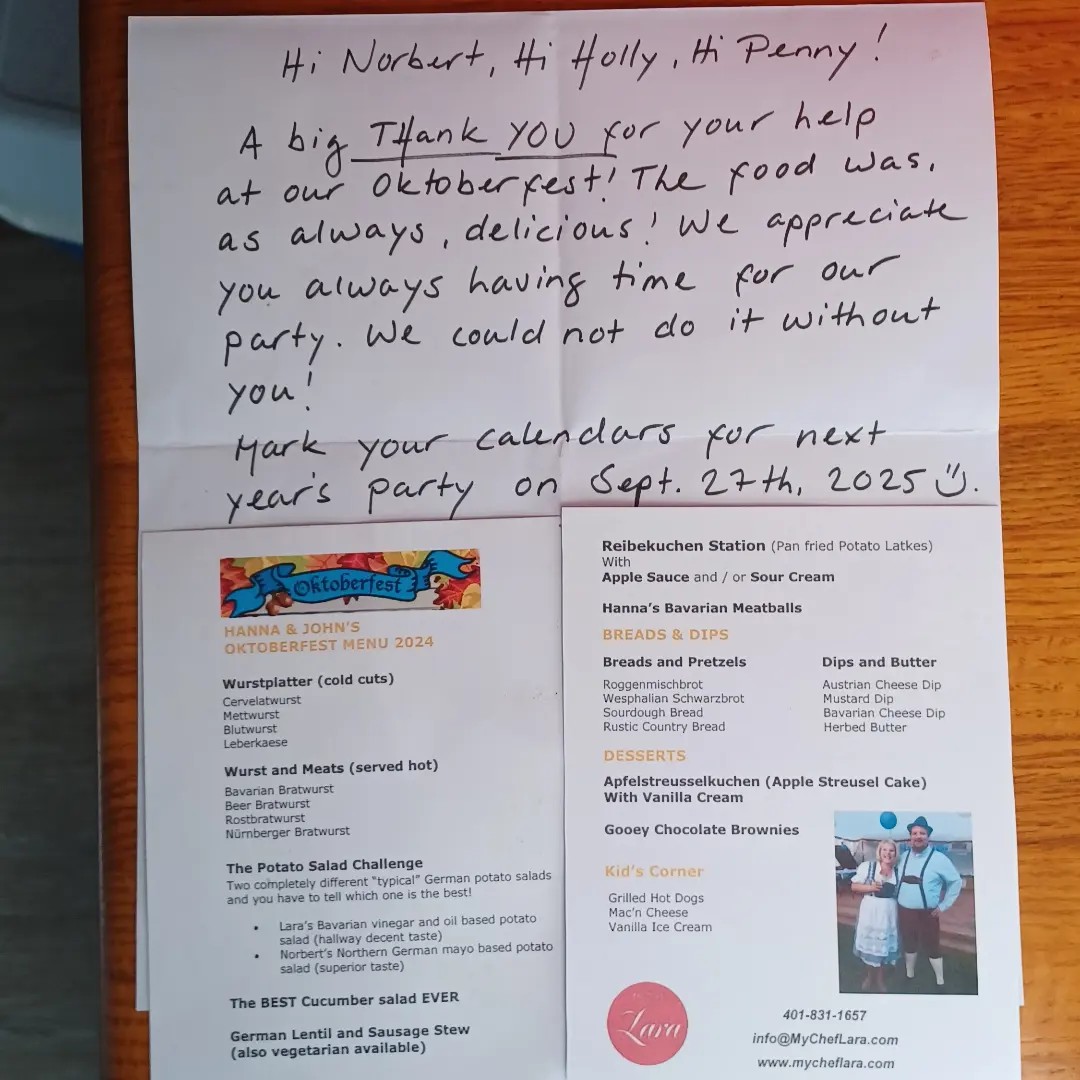 Hi Norbert, Hi Holly, Hi Penny!
A big THank YOU for your help
at our Oktoberfest! The food was,
as always, delicious! We appreciate
you always having time for our
party. We could not do it without
you!
Mark your calendars for next
year's party on Sept. 27th, 2025
Oktoberfest
HANNA & JOHN'S
OKTOBERFEST MENU 2024
Wurstplatter (cold cuts)
Cervelatwurst
Mettwurst
Blutwurst
Leberkaese
Wurst and Meats (served hot)
Bavarian Bratwurst
Beer Bratwurst
Rostbratwurst
Nürnberger Bratwurst
The Potato Salad Challenge
Two completely different "typical" German potato salads
and you have to tell which one is the best!
• Lara's Bavarian vinegar and oil based potato
salad (hallway decent taste)
• Norbert's Northern German mayo based potato
salad (superior taste)
The BEST Cucumber salad EVER
German Lentil and Sausage Stew
(also vegetarian available)
Reibekuchen Station (Pan fried Potato Latkes)
With
Apple Sauce and / or Sour Cream
Hanna's Bavarian Meatballs
BREADS & DIPS
Breads and Pretzels
Roggenmischbrot
Wesphalian Schwarzbrot
Sourdough Bread
Rustic Country Bread
Dips and Butter
Austrian Cheese Dip
Mustard Dip
Bavarian Cheese Dip
Herbed Butter
DESSERTS
Apfelstreusselkuchen (Apple Streusel Cake)
With Vanilla Cream
Gooey Chocolate Brownies
Kid's Corner
Grilled Hot Dogs
Mac'n Cheese
Vanilla Ice Cream
Lara
401-831-1657
info@MyChefLara.com
www.mycheflara.com